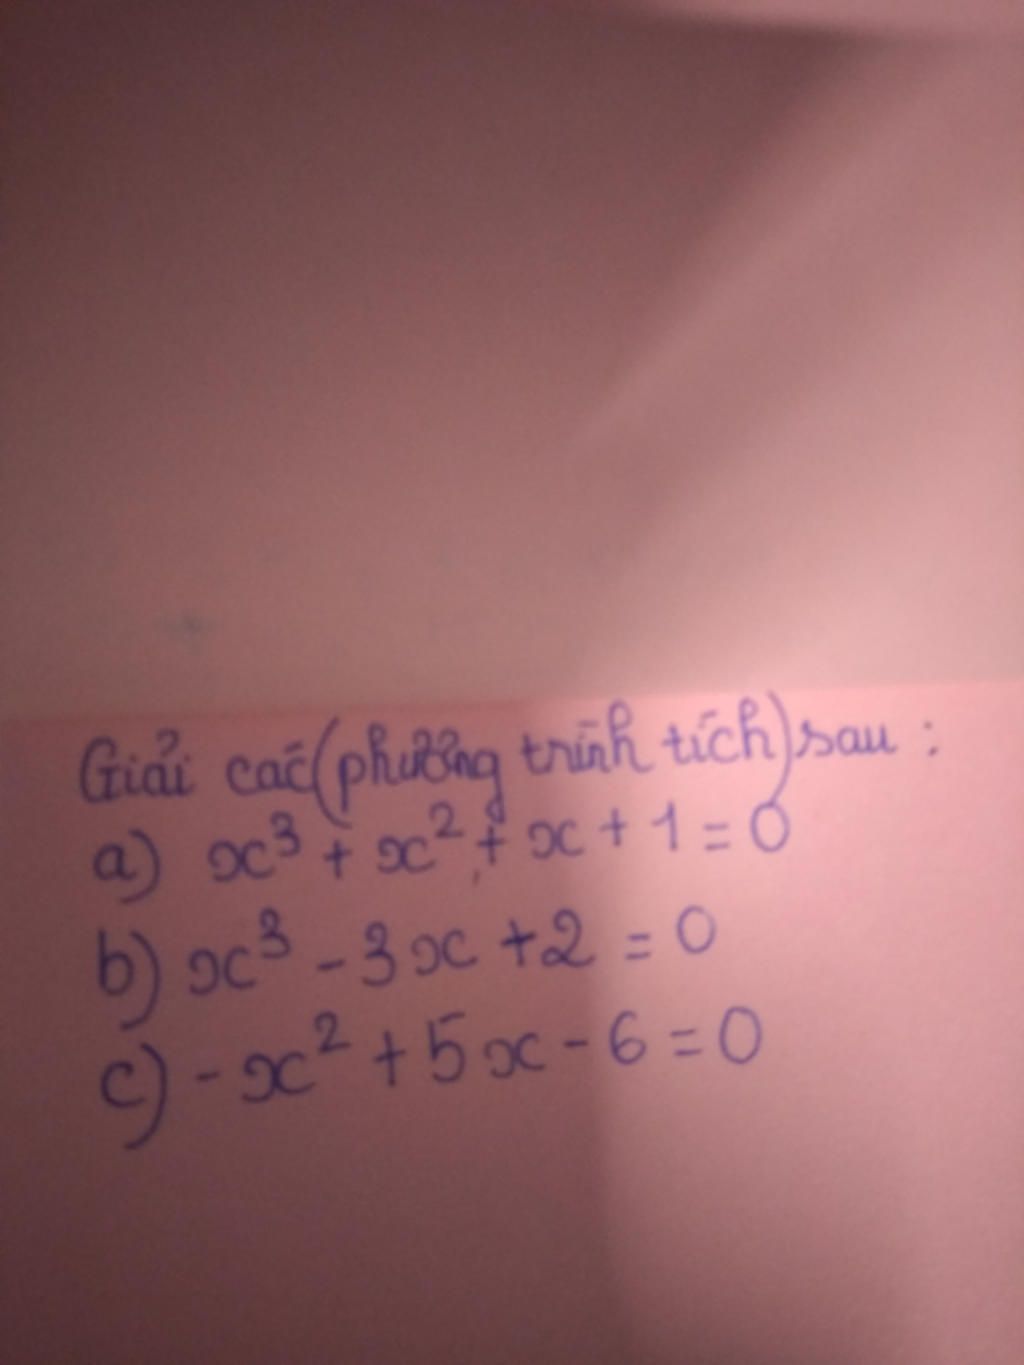 Giải các (phương trình tích) sau :
a) x³ + x² + x + 1 = 0
b) x³ - 3x + 2 = 0
c) - x² + 5x - 6 = 0